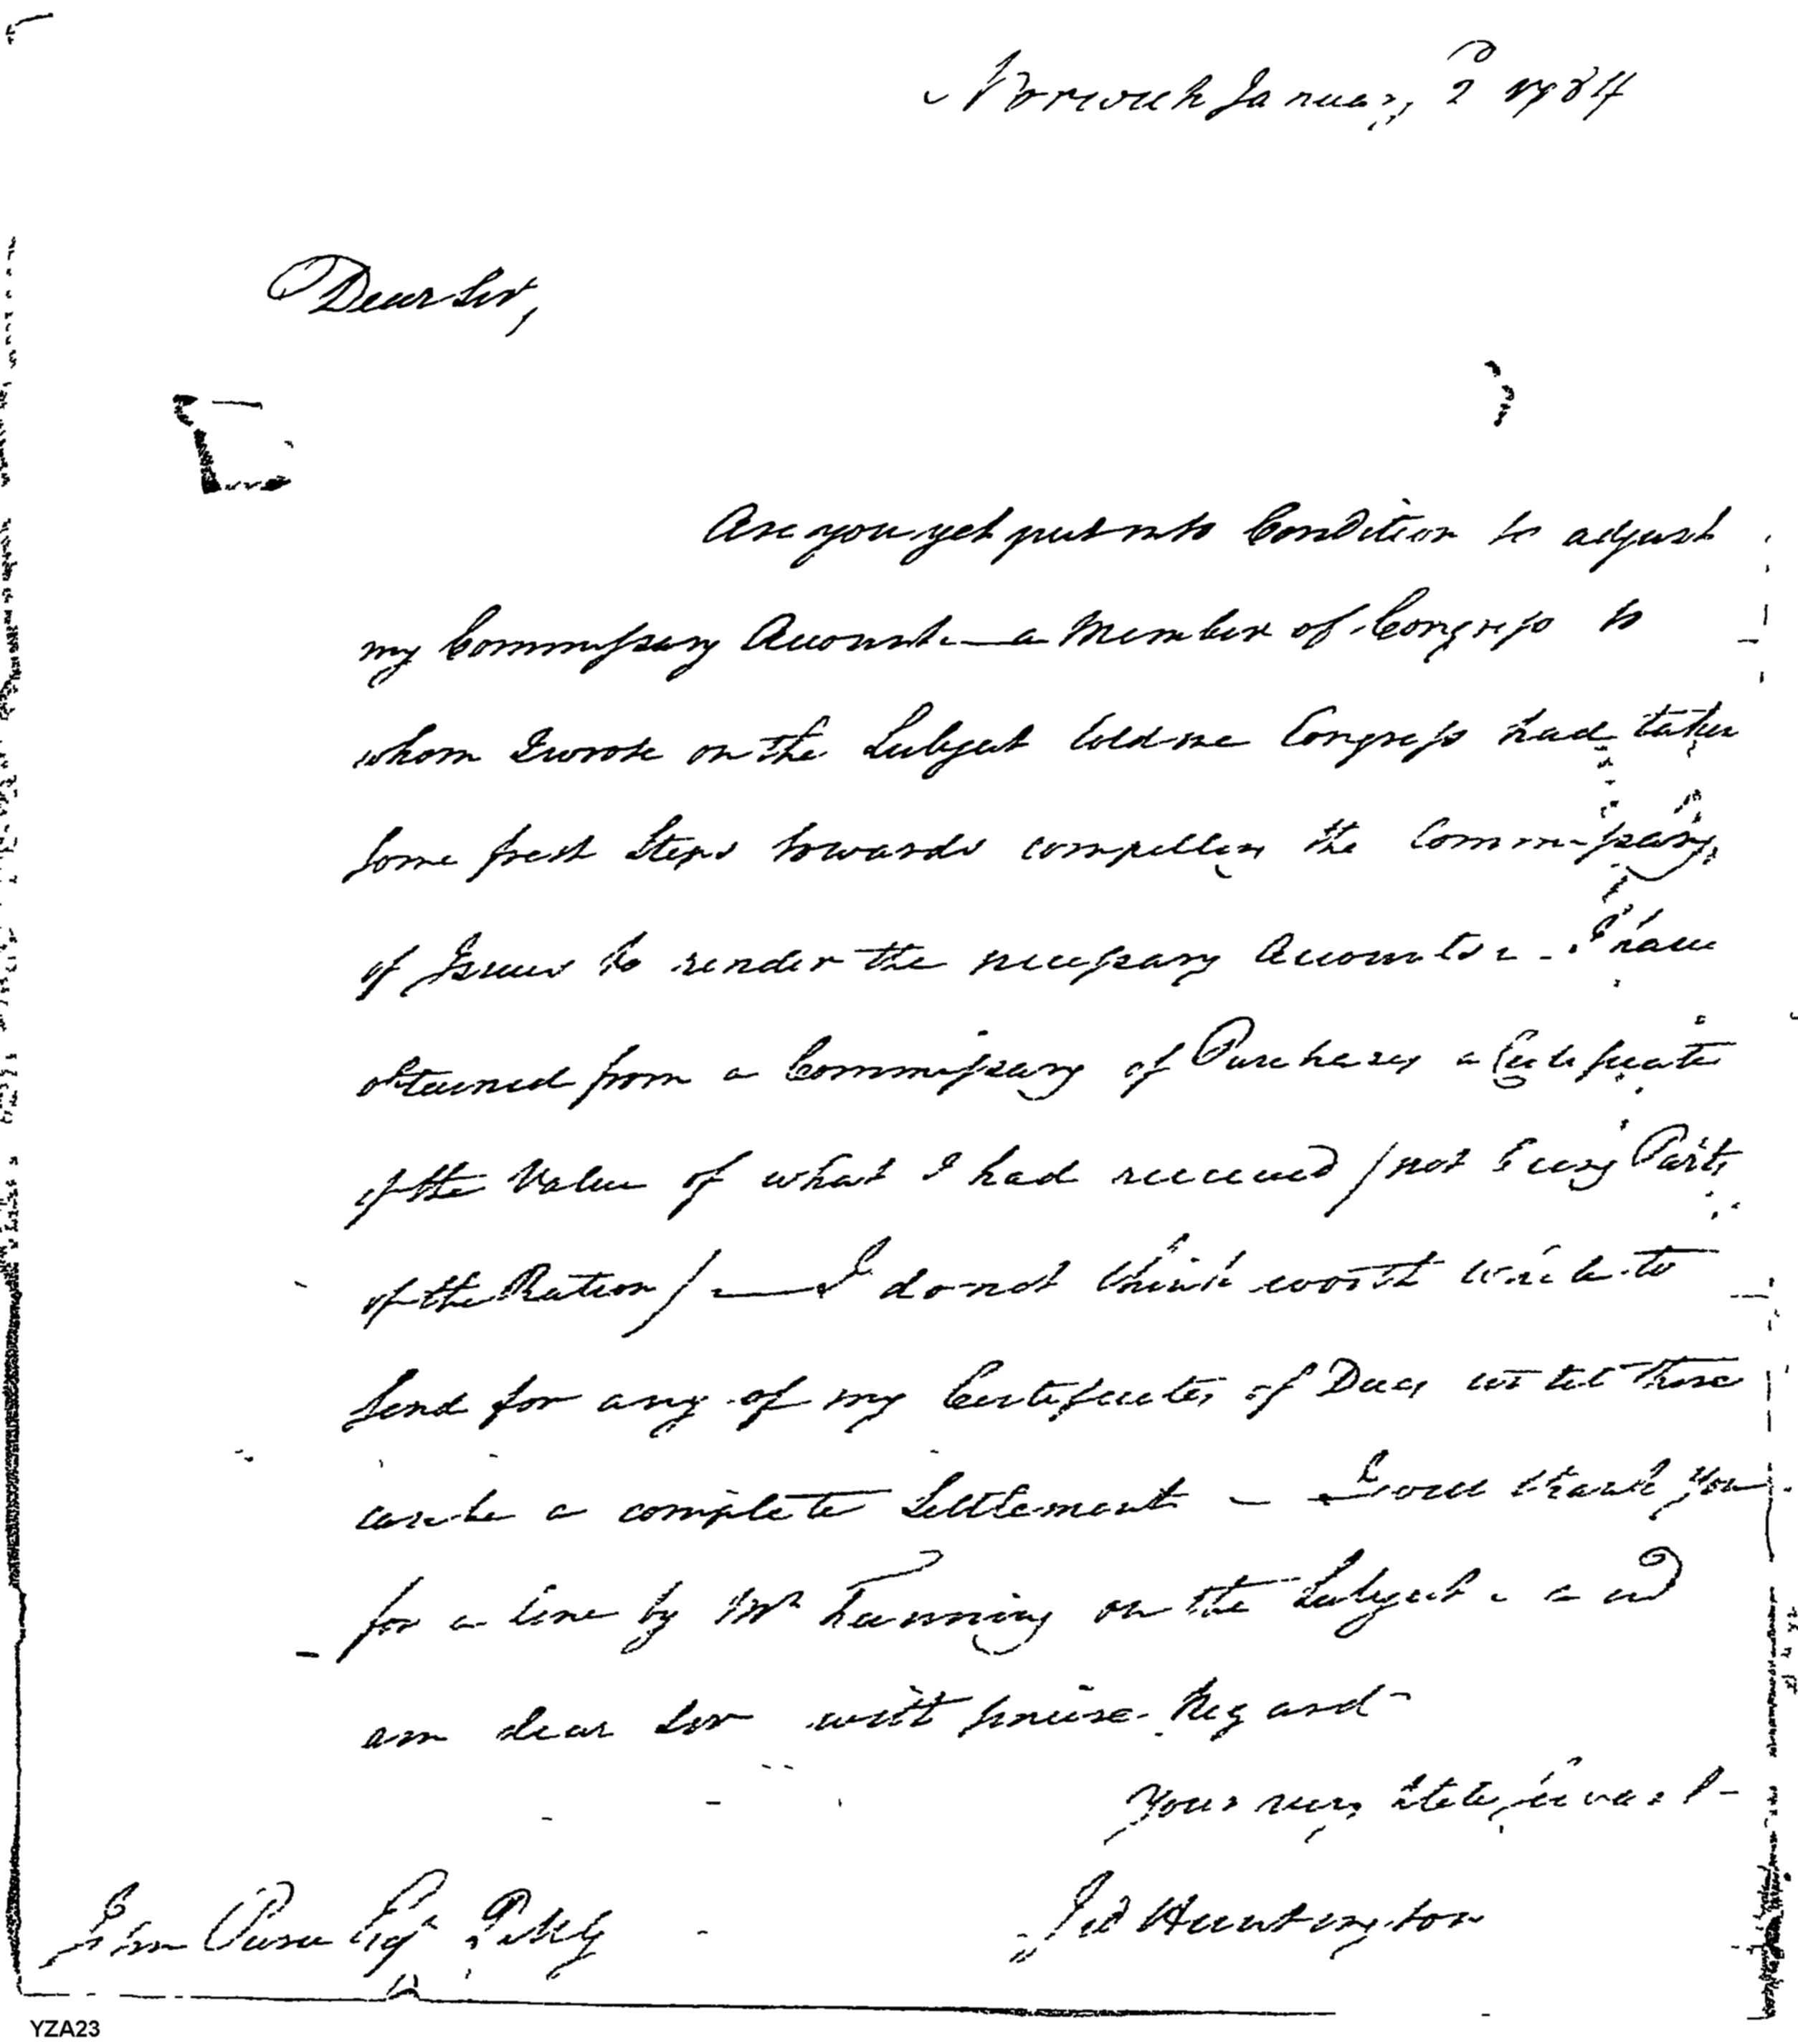 Norwich January 2d 1784
Dear Sir,
Are you yet put into Condition to adjust
my Commissary Accounts — a Member of Congress to
whom I wrote on the Subject told me Congress had taken
some fresh Steps towards compelling the Commissary
of Issues to render the necessary Accounts - I have
obtained from a Commissary of Purchases a Certificate
of the Value of what I had received / not being Parts
of the Ration / — I do not think worth while to
send for any of my Certificates of Dues until there
can be a complete Settlement — I will thank you
for a line by Mr Fanning on the Subject - and
am dear Sir with sincere Regard
Your very Servant
Jed Huntington
John Pierce Esqr P M G
YZA23